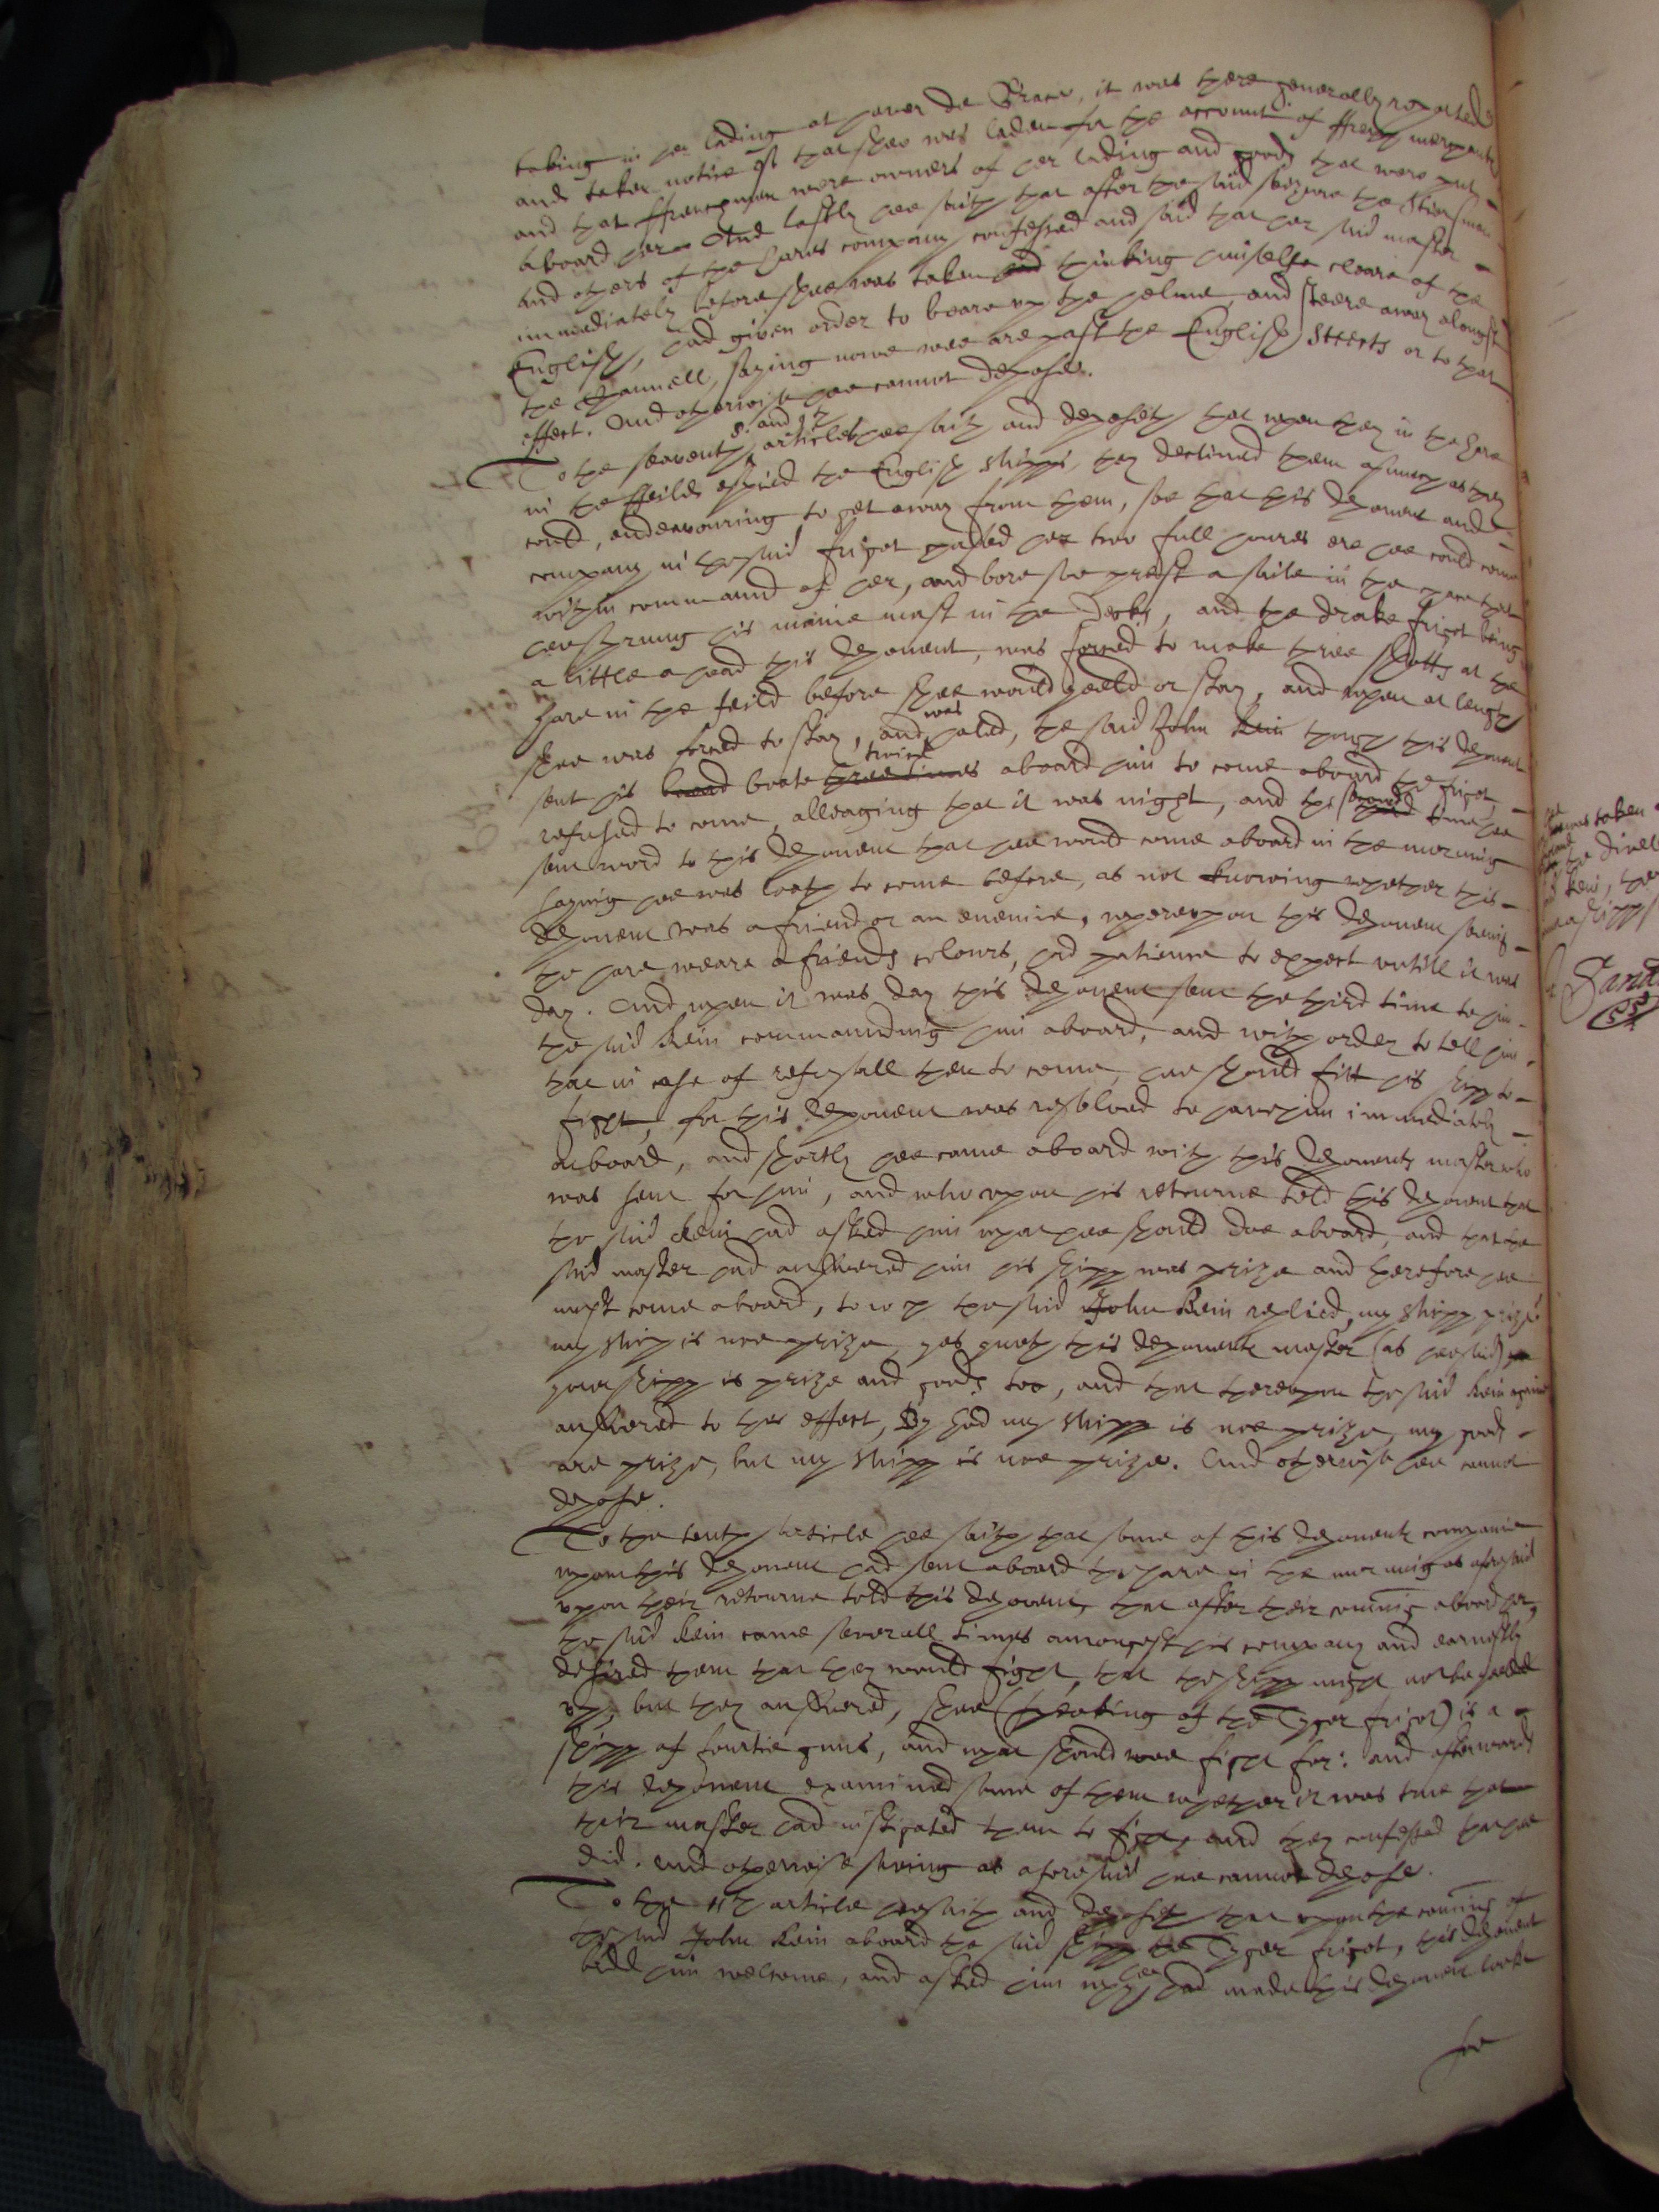 taking in her lading at haver de Grace, it was there generally reported
and taken notice of that shee was laden for the account of ffrench merchants
and that ffrenchmen were owners of her lading and goods that were put
aboard her. And lastly hee saith that after the said seizure the Stiersman
and others of the hares company confessed and said that her said master
immediately before shee was taken thinking himselfe cleare of the
English, had given order to beare up the helme, and steere away alongst
the Channell, saying nowe wee are past the English or to that
effect. And otherwise hee cannot depose.
To the seaventh 8. and 9th articles hee saith and deposeth that when they in the hare
in the ffeilde espied the English shipps, they declined them asmuch as they
could, endeavouring to get away from them, soe that this deponent and
company in the said frigot chased her two full houres ere hee could come
within command of her, and bore soe prest a saile in the chace that
hee sprung his maine mast in the Decks, and the drake frigot being
a little ahead this deponent, was forced to make three shotts at the
hare in the feild before shee would yeeld or stay, and when at length
shee was forced to stay, and was haled, the said John Kein though this deponent
sent his boate twice aboard him to come aboard the frigot,
refused to come, alleaging that it was night, and the second time hee
sent word to this deponent that hee would come aboard in the morning
saying hee was loath to come before, as not knowing whether this
deponent was a friend or an enemie, whereupon this deponent seeing
the hare weare a friends colours, had patience to expect untill it was
day. And when it was day this deponent sent the third time to him
the said Kein commaunding him aboard, and with order to tell him
that in case of refusall then to come, hee should fitt his shipp to
fight, for this deponent was resolved to have him immediately
aboard, and shortly hee came aboard with this deponents master who
was sent for him, and who upon his returne told this deponent that
the said Kein had asked him what hee should doe aboard, and that the
said master had answered him his shipp was prize and therefore hee
must come aboard, to wch the said John Kein replied, my shipp prize
my ship is noe prize, yes quoth this deponents master (as hee said)
your shipp is prize and goods too, and that thereupon the said Kein againe
answered to this effect, By God my shipp is noe prize, my goods
are prize, but my shipp is noe prize. And otherwise hee cannot
depose.
To the tenth article hee saith that some of this deponents companie
whom this deponent had sent aboard the hare in the morning as aforesaid
upon their retourne told this deponent, that after their coming aboard her,
the said Kein came severall times amongest his company and earnestly
desired them that they would fight, that the shipp might not be yeelded
up, but they answered, shee (speaking of the Tyger frigot) is a
shipp of fourtie gunns, and what should wee fight for: and afterwards
this deponent examined some of them whether it was true that
their master had instigated them to fight, and they confessed that hee
did. And otherwise saving as aforesaid hee cannot depose.
To the 11th article hee saith and deposeth that upon the coming of
the said John Kein aboard the said shipp the Tyger frigot, this deponent
bidd him welcome, and asked him why hee had made this deponent
soe
was taken
the
Kein, the
shipp